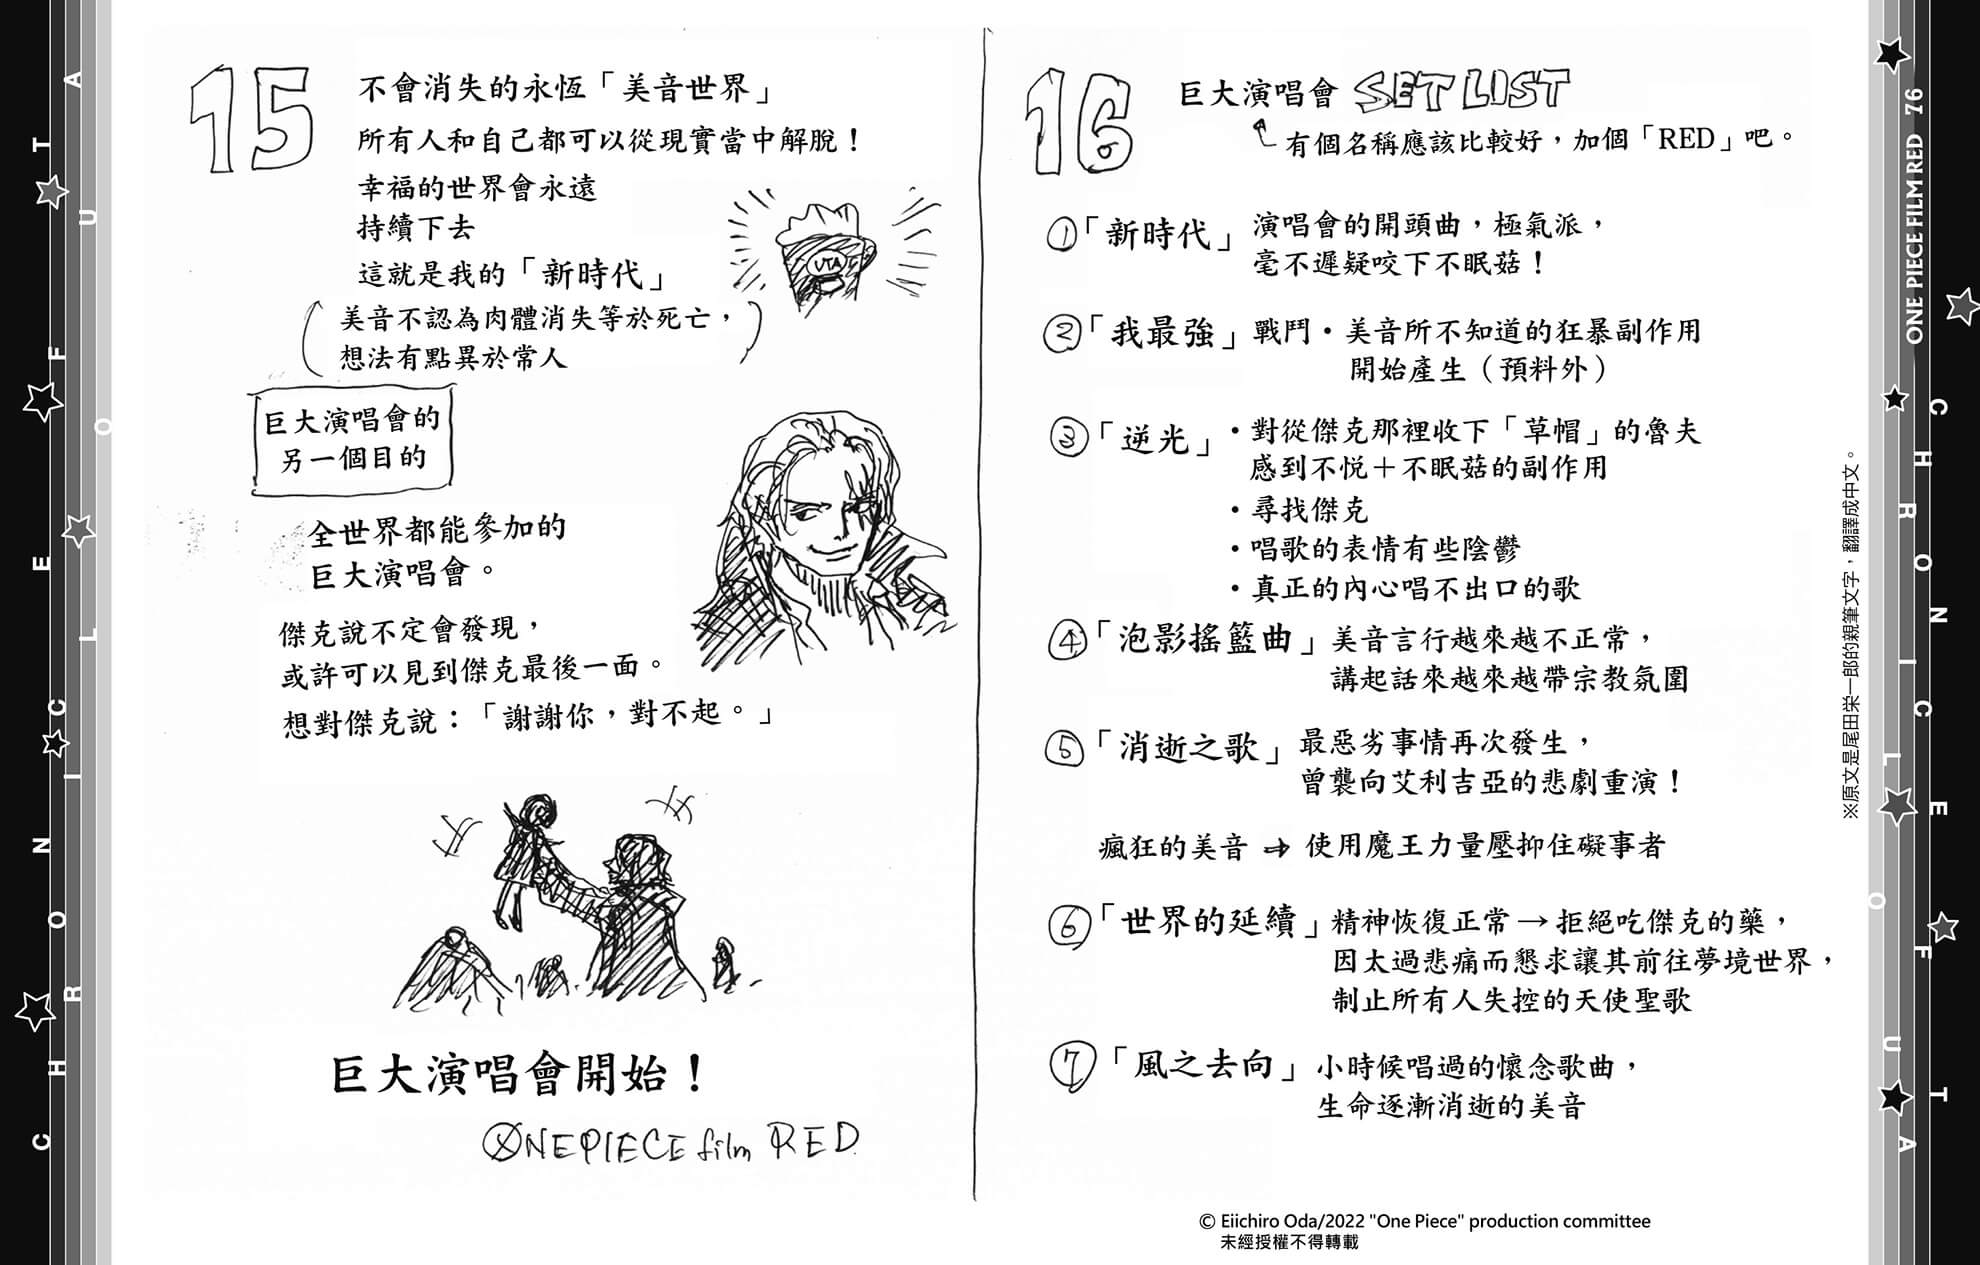 CHRONICLE OF UTA
15
不會消失的永恆「美音世界」
所有人和自己都可以從現實當中解脫！
幸福的世界會永遠
持續下去
這就是我的「新時代」
美音不認為肉體消失等於死亡，
想法有點異於常人
UTA
巨大演唱會的
另一個目的
全世界都能參加的
巨大演唱會。
傑克說不定會發現，
或許可以見到傑克最後一面。
想對傑克說：「謝謝你，對不起。」
巨大演唱會開始！
ONEPIECE film RED
16
巨大演唱會 SET LIST
有個名稱應該比較好，加個「RED」吧。
①「新時代」演唱會的開頭曲，極氣派，
毫不遲疑咬下不眠菇！
②「我最強」戰鬥・美音所不知道的狂暴副作用
開始產生（預料外）
③「逆光」・對從傑克那裡收下「草帽」的魯夫
感到不悅＋不眠菇的副作用
・尋找傑克
・唱歌的表情有些陰鬱
・真正的內心唱不出口的歌
④「泡影搖籃曲」美音言行越來越不正常，
講起話來越來越帶宗教氛圍
⑤「消逝之歌」最惡劣事情再次發生，
曾襲向艾利吉亞的悲劇重演！
瘋狂的美音⇒使用魔王力量壓抑住礙事者
⑥「世界的延續」精神恢復正常→拒絕吃傑克的藥，
因太過悲痛而懇求讓其前往夢境世界，
制止所有人失控的天使聖歌
⑦「風之去向」小時候唱過的懷念歌曲，
生命逐漸消逝的美音
※原文是尾田栄一郎的親筆文字，翻譯成中文。
ONE PIECE FILM RED 76
CHRONICLE OF UTA
© Eiichiro Oda/2022 "One Piece" production committee
未經授權不得轉載